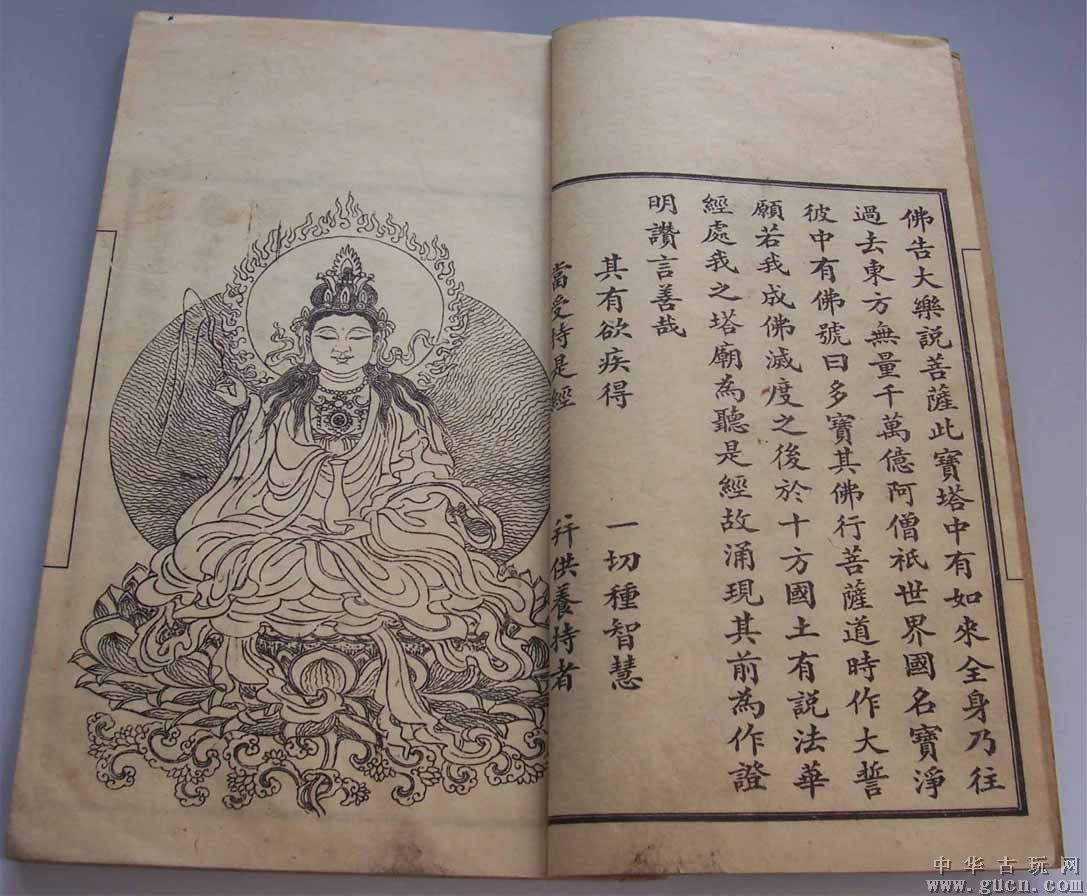 佛告大樂說菩薩此寶塔中有如來全身乃往
過去東方無量千萬億阿僧祇世界國名寶淨
彼中有佛號曰多寶其佛行菩薩道時作大誓
願若我成佛滅度之後於十方國土有說法華
經處我之塔廟為聽是經故涌現其前為作證
明讚言善哉
其有欲疾得 一切種智慧
當受持是經 并供養持者
中华古玩网
www.gucn.com